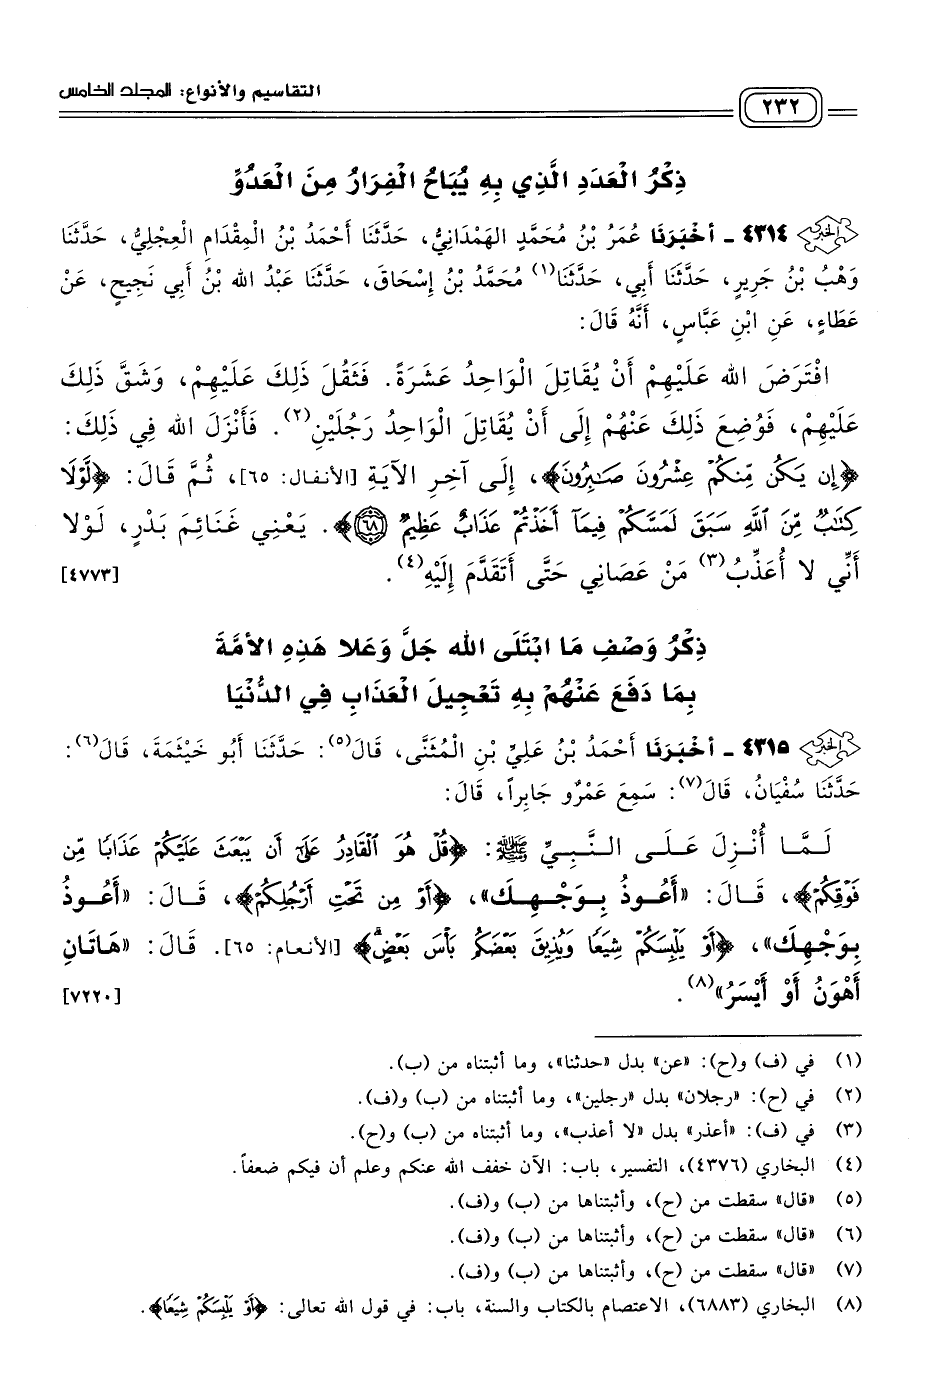 التقاسيم والأنواع: المجلد الخامس
٢٣٢
ذِكْرُ الْعَدَدِ الَّذِي بِهِ يُبَاحُ الْفِرَارُ مِنَ الْعَدُوِّ
الخبر ٤٣١٤ ـ أخْبَرَنَا عُمَرُ بْنُ مُحَمَّدٍ الهَمْدَانِيُّ، حَدَّثَنَا أَحْمَدُ بْنُ الْمِقْدَامِ الْعِجْلِيُّ، حَدَّثَنَا
وَهْبُ بْنُ جَرِيرٍ، حَدَّثَنَا أَبِي، حَدَّثَنَا(١) مُحَمَّدُ بْنُ إِسْحَاقَ، حَدَّثَنَا عَبْدُ الله بْنُ أَبِي نَجِيحٍ، عَنْ
عَطَاءٍ، عَنِ ابْنِ عَبَّاسٍ، أَنَّهُ قَالَ:
افْتَرَضَ الله عَلَيْهِمْ أَنْ يُقَاتِلَ الْوَاحِدُ عَشَرَةً. فَثَقُلَ ذَلِكَ عَلَيْهِمْ، وَشَقَّ ذَلِكَ
عَلَيْهِمْ، فَوُضِعَ ذَلِكَ عَنْهُمْ إِلَى أَنْ يُقَاتِلَ الْوَاحِدُ رَجُلَيْنِ(٢). فَأَنْزَلَ الله فِي ذَلِكَ:
﴿إِن يَكُن مِّنكُمْ عِشْرُونَ صَٰبِرُونَ﴾، إِلَى آخِرِ الآيَةِ [الأنفال: ٦٥]، ثُمَّ قَالَ: ﴿لَّوْلَا
كِتَٰبٌ مِّنَ ٱللَّهِ سَبَقَ لَمَسَّكُمْ فِيمَآ أَخَذْتُمْ عَذَابٌ عَظِيمٌ ٦٨﴾. يَعْنِي غَنَائِمَ بَدْرٍ، لَوْلا
أَنِّي لا أُعَذِّبُ(٣) مَنْ عَصَانِي حَتَّى أَتَقَدَّمَ إِلَيْهِ(٤). [٤٧٧٣]
ذِكْرُ وَصْفِ مَا ابْتَلَى الله جَلَّ وَعَلا هَذِهِ الأمَّةَ
بِمَا دَفَعَ عَنْهُمْ بِهِ تَعْجِيلَ الْعَذَابِ فِي الدُّنْيَا
الخبر ٤٣١٥ ـ أخْبَرَنَا أَحْمَدُ بْنُ عَلِيِّ بْنِ الْمُثَنَّى، قَالَ(٥): حَدَّثَنَا أَبُو خَيْثَمَةَ، قَالَ(٦):
حَدَّثَنَا سُفْيَانُ، قَالَ(٧): سَمِعَ عَمْرٌو جَابِراً، قَالَ:
لَمَّا أُنْزِلَ عَلَى النَّبِيِّ ﷺ: ﴿قُلْ هُوَ ٱلْقَادِرُ عَلَىٰٓ أَن يَبْعَثَ عَلَيْكُمْ عَذَابًا مِّن
فَوْقِكُمْ﴾، قَالَ: «أَعُوذُ بِوَجْهِكَ»، ﴿أَوْ مِن تَحْتِ أَرْجُلِكُمْ﴾، قَالَ: «أَعُوذُ
بِوَجْهِكَ»، ﴿أَوْ يَلْبِسَكُمْ شِيَعًا وَيُذِيقَ بَعْضَكُم بَأْسَ بَعْضٍ﴾ [الأنعام: ٦٥]. قَالَ: «هَاتَانِ
أَهْوَنُ أَوْ أَيْسَرُ»(٨). [٧٢٢٠]
(١) في (ف) و(ح): «عن» بدل «حدثنا»، وما أثبتناه من (ب).
(٢) في (ح): «رجلان» بدل «رجلين»، وما أثبتناه من (ب) و(ف).
(٣) في (ف): «أعذر» بدل «لا أعذب»، وما أثبتناه من (ب) و(ح).
(٤) البخاري (٤٣٧٦)، التفسير، باب: الآن خفف الله عنكم وعلم أن فيكم ضعفاً.
(٥) «قال» سقطت من (ح)، وأثبتناها من (ب) و(ف).
(٦) «قال» سقطت من (ح)، وأثبتناها من (ب) و(ف).
(٧) «قال» سقطت من (ح)، وأثبتناها من (ب) و(ف).
(٨) البخاري (٦٨٨٣)، الاعتصام بالكتاب والسنة، باب: في قول الله تعالى: ﴿أَوْ يَلْبِسَكُمْ شِيَعًا﴾.